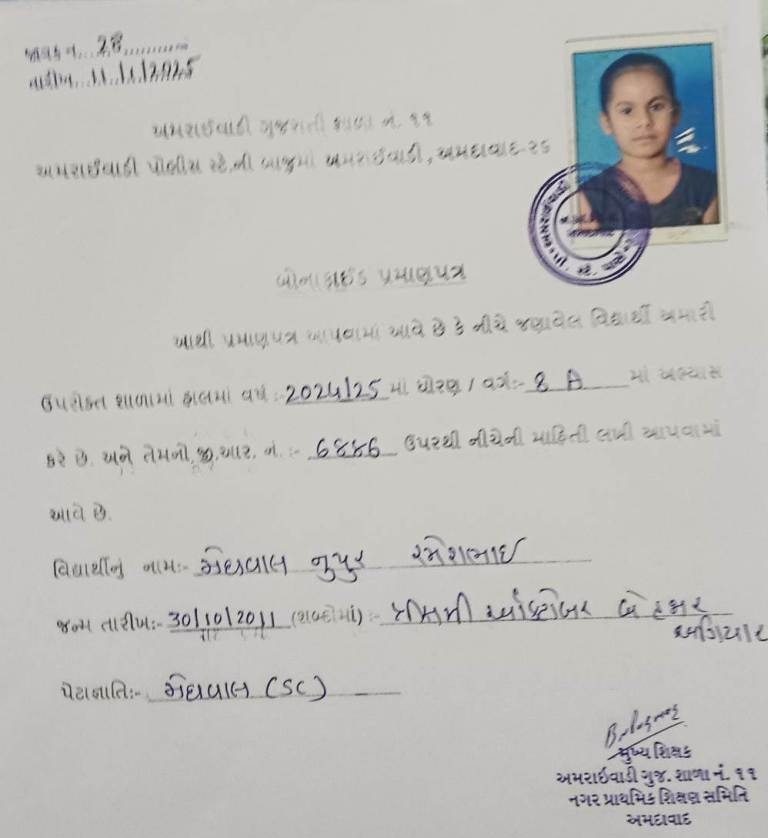 જાવક નં....28............
તારીખ...11/1/2025
અમરાઈવાડી ગુજરાતી શાળા નં. ૧૧
અમરાઈવાડી પોલીસ સ્ટે.ની બાજુમાં અમરાઈવાડી, અમદાવાદ-૨૬
બોનાફાઈડ પ્રમાણપત્ર
આથી પ્રમાણપત્ર આપવામાં આવે છે કે નીચે જણાવેલ વિદ્યાર્થી અમારી
ઉપરોક્ત શાળામાં હાલમાં વર્ષ :-2024/25 માં ધોરણ / વર્ગ:- 8 A માં અભ્યાસ
કરે છે. અને તેમનો જી.આર. નં. :- 6886 ઉપરથી નીચેની માહિતી લખી આપવામાં
આવે છે.
વિદ્યાર્થીનું નામ:- મેઘવાલ નુપુર રમેશભાઈ
જન્મ તારીખ:- 30/10/2011 (શબ્દોમાં) :- ત્રીસમી ઓક્ટોબર બે હજાર
અગિયાર
પેટાજ્ઞાતિ:- મેઘવાલ (SC)
મુખ્ય શિક્ષક
અમરાઈવાડી ગુજ. શાળા નં. ૧૧
નગર પ્રાથમિક શિક્ષણ સમિતિ
અમદાવાદ